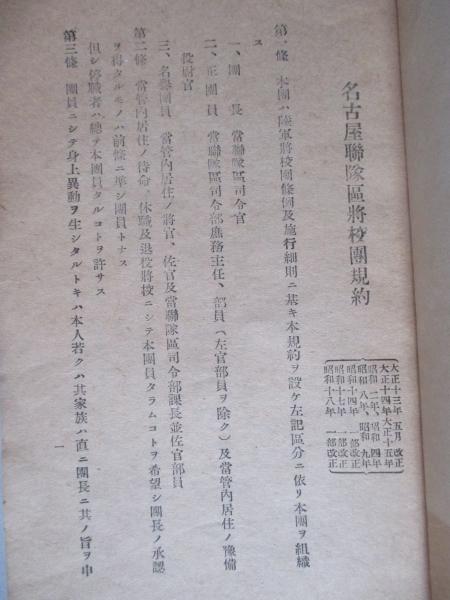 名古屋聯隊區將校團規約
大正十三年五月改正
大正十四年大正十五年
昭和二年、昭和四年
昭和八年、昭和九年
昭和十四年 一部改正
昭和十七年 一部改正
昭和十八年 一部改正
第一條 本團ハ陸軍將校團條例及施行細則ニ基キ本規約ヲ設ケ左記區分ニ依リ本團ヲ組織
ス
一、團長 當聯隊區司令官
二、正團員 當聯隊區司令部庶務主任、部員(左官部員ヲ除ク)及當管內居住ノ豫備
役尉官
三、名譽團員 當管內居住ノ將官、佐官及當聯隊區司令部課長並佐官部員
第二條 當管內居住ノ待命、休職及退役將校ニシテ本團員タラムコトヲ希望シ團長ノ承認
ヲ得タルモノハ前條ニ準シ團員トナス
但シ停職者ハ總テ本團員タルコトヲ許サス
第三條 團員ニシテ身上異動ヲ生シタルトキハ本人若クハ其家族ハ直ニ團長ニ其ノ旨ヲ申
一